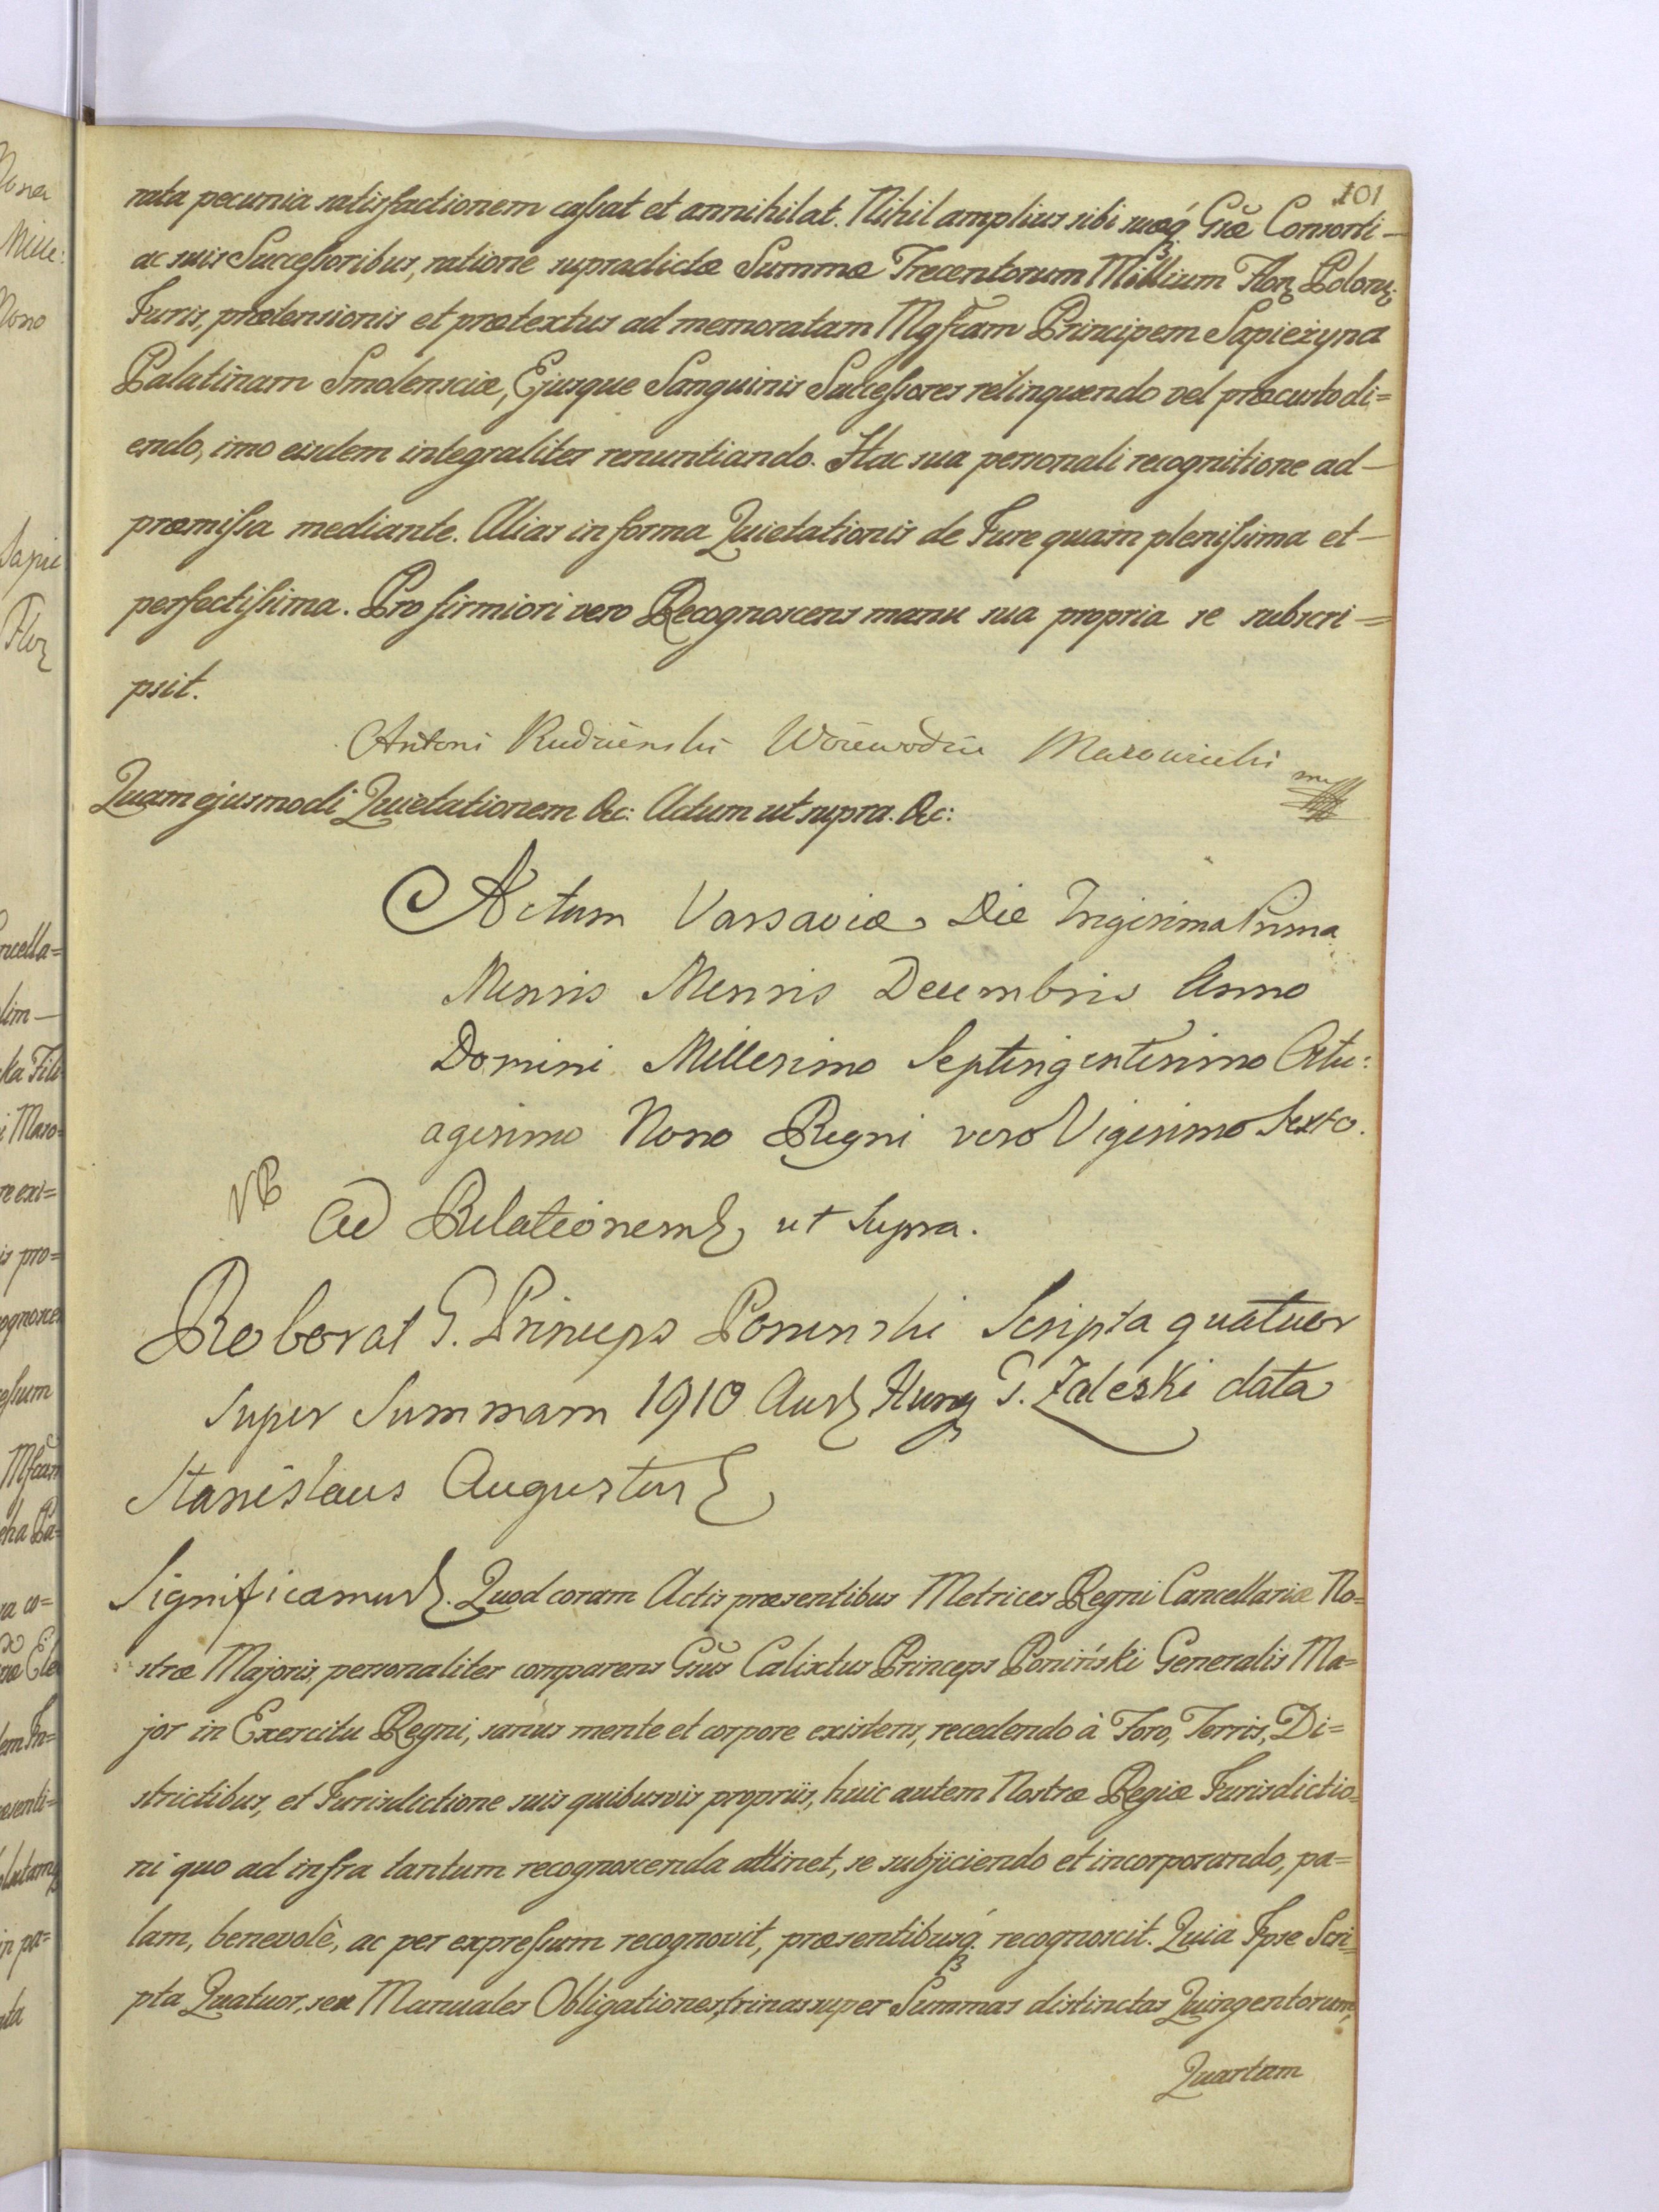 101
rata pecunia satisfactionem cassat et annihilat. Nihil amplius sibi suæq́ Gsæ Consorti—
ac suis Successoribus, ratione supradictæ Summæ Trecentorum Millium Flor: Polon:
Juris, prætensionis et prætextus ad memoratam Mgfcam Principem Sapieżyna
Palatinam Smolensciæ, Ejusque Sanguinis Successores relinquendo vel præcustodi=
endo, imo eisdem integraliter renuntiando. Hac sua personali recognitione ad—
præmissa mediante. Alias in forma Quietationis de Jure quam plenissima et—
perfectissima. Pro firmiori vero Recognoscens manu sua propria se subscri=
psit.
Antoni Rudzienski Woiewodzic Mazowiecki mp
Quam ejusmodi Quietationem &c: Actum ut supra. &c:
Actum Varsaviæ Die Trigesima Prima
Mensis Mensis Decembris Anno
Domini Millesimo Septingentesimo Octu:
agesimo Nono Regni vero Vigesimo Sexto.
NB
Ad Relationem ut Supra.
Roborat G. Princeps Poninski Scripta quatuor
super Summam 1910 Aur Hung G. Zaleski data
Stanislaus Augustus
Significamus. Quod coram Actis præsentibus Metrices Regni Cancellariæ No=
stræ Majoris, personaliter comparens Gsus Calixtus Princeps Poniński Generalis Ma=
jor in Exercitu Regni, sanus mente et corpore existens, recedendo à Foro, Terris, Di=
strictibus, et Jurisdictione suis quibusvis propriis, huic autem Nostræ Regiæ Jurisdictio=
ni quo ad infra tantum recognoscenda attinet, se subjiciendo et incorporando, pa=
lam, benevolè, ac per expressum recognovit, præsentibusq́. recognoscit. Quia Ipse Scri=
pta Quatuor, seu Manuales Obligationes, trinas super Summas distinctas Quingentorum,
Quartam